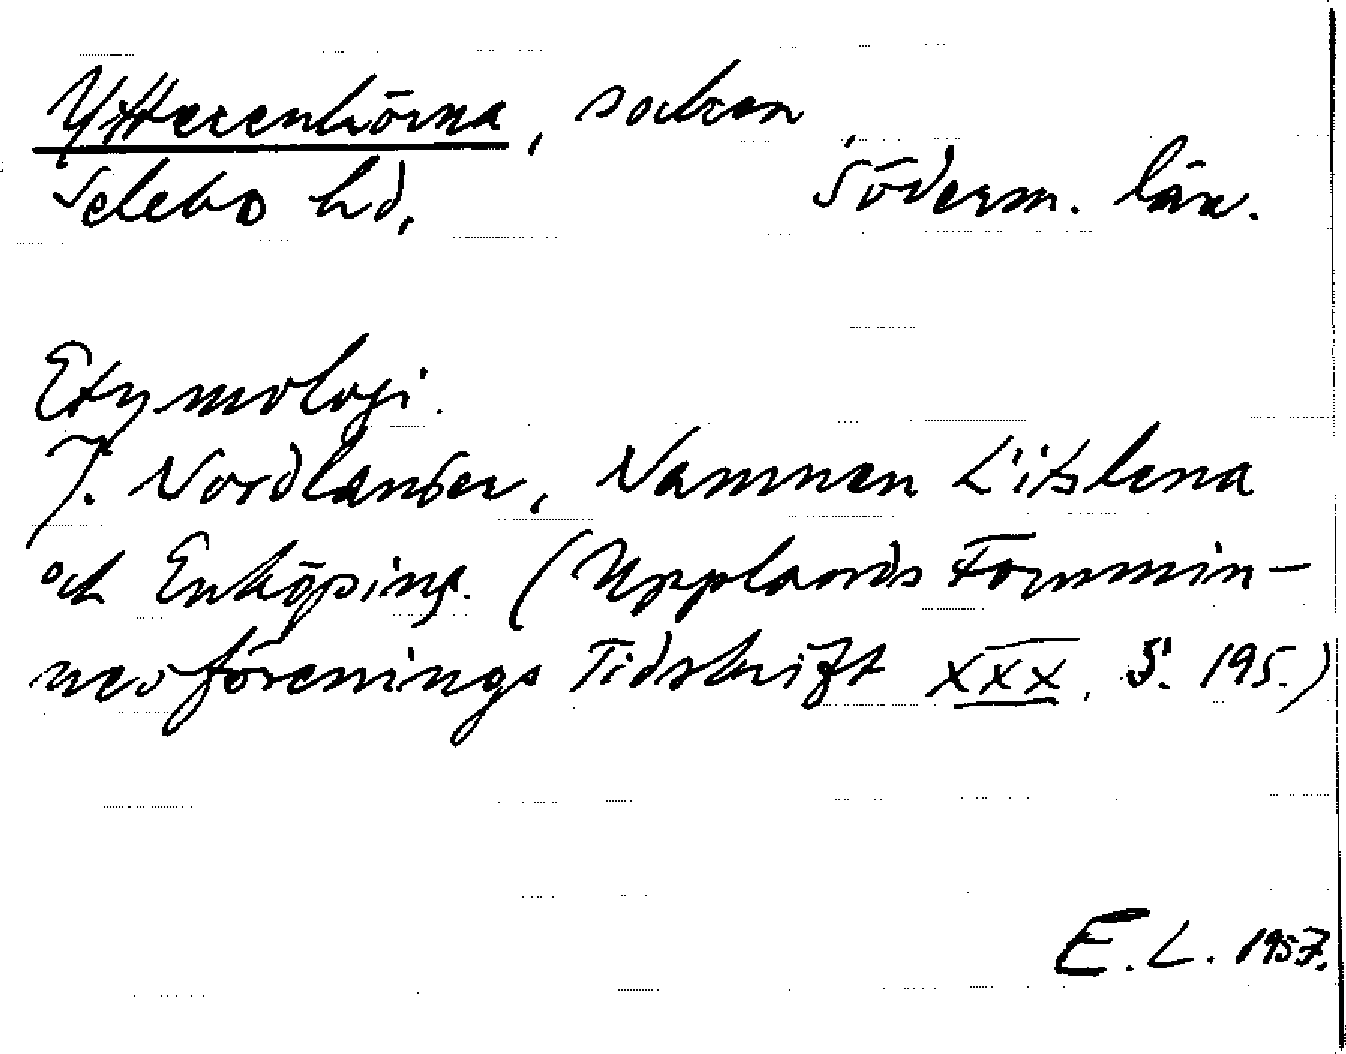 Ytterenhörna, socken
Selebo hd, Söderm. län.
Etymologi.
J. Nordlander, Namnen Litslena
och Enköping. (Upplands Fornmin-
nesförenings Tidskrift XXX. S. 195.)
E. L. 1957.